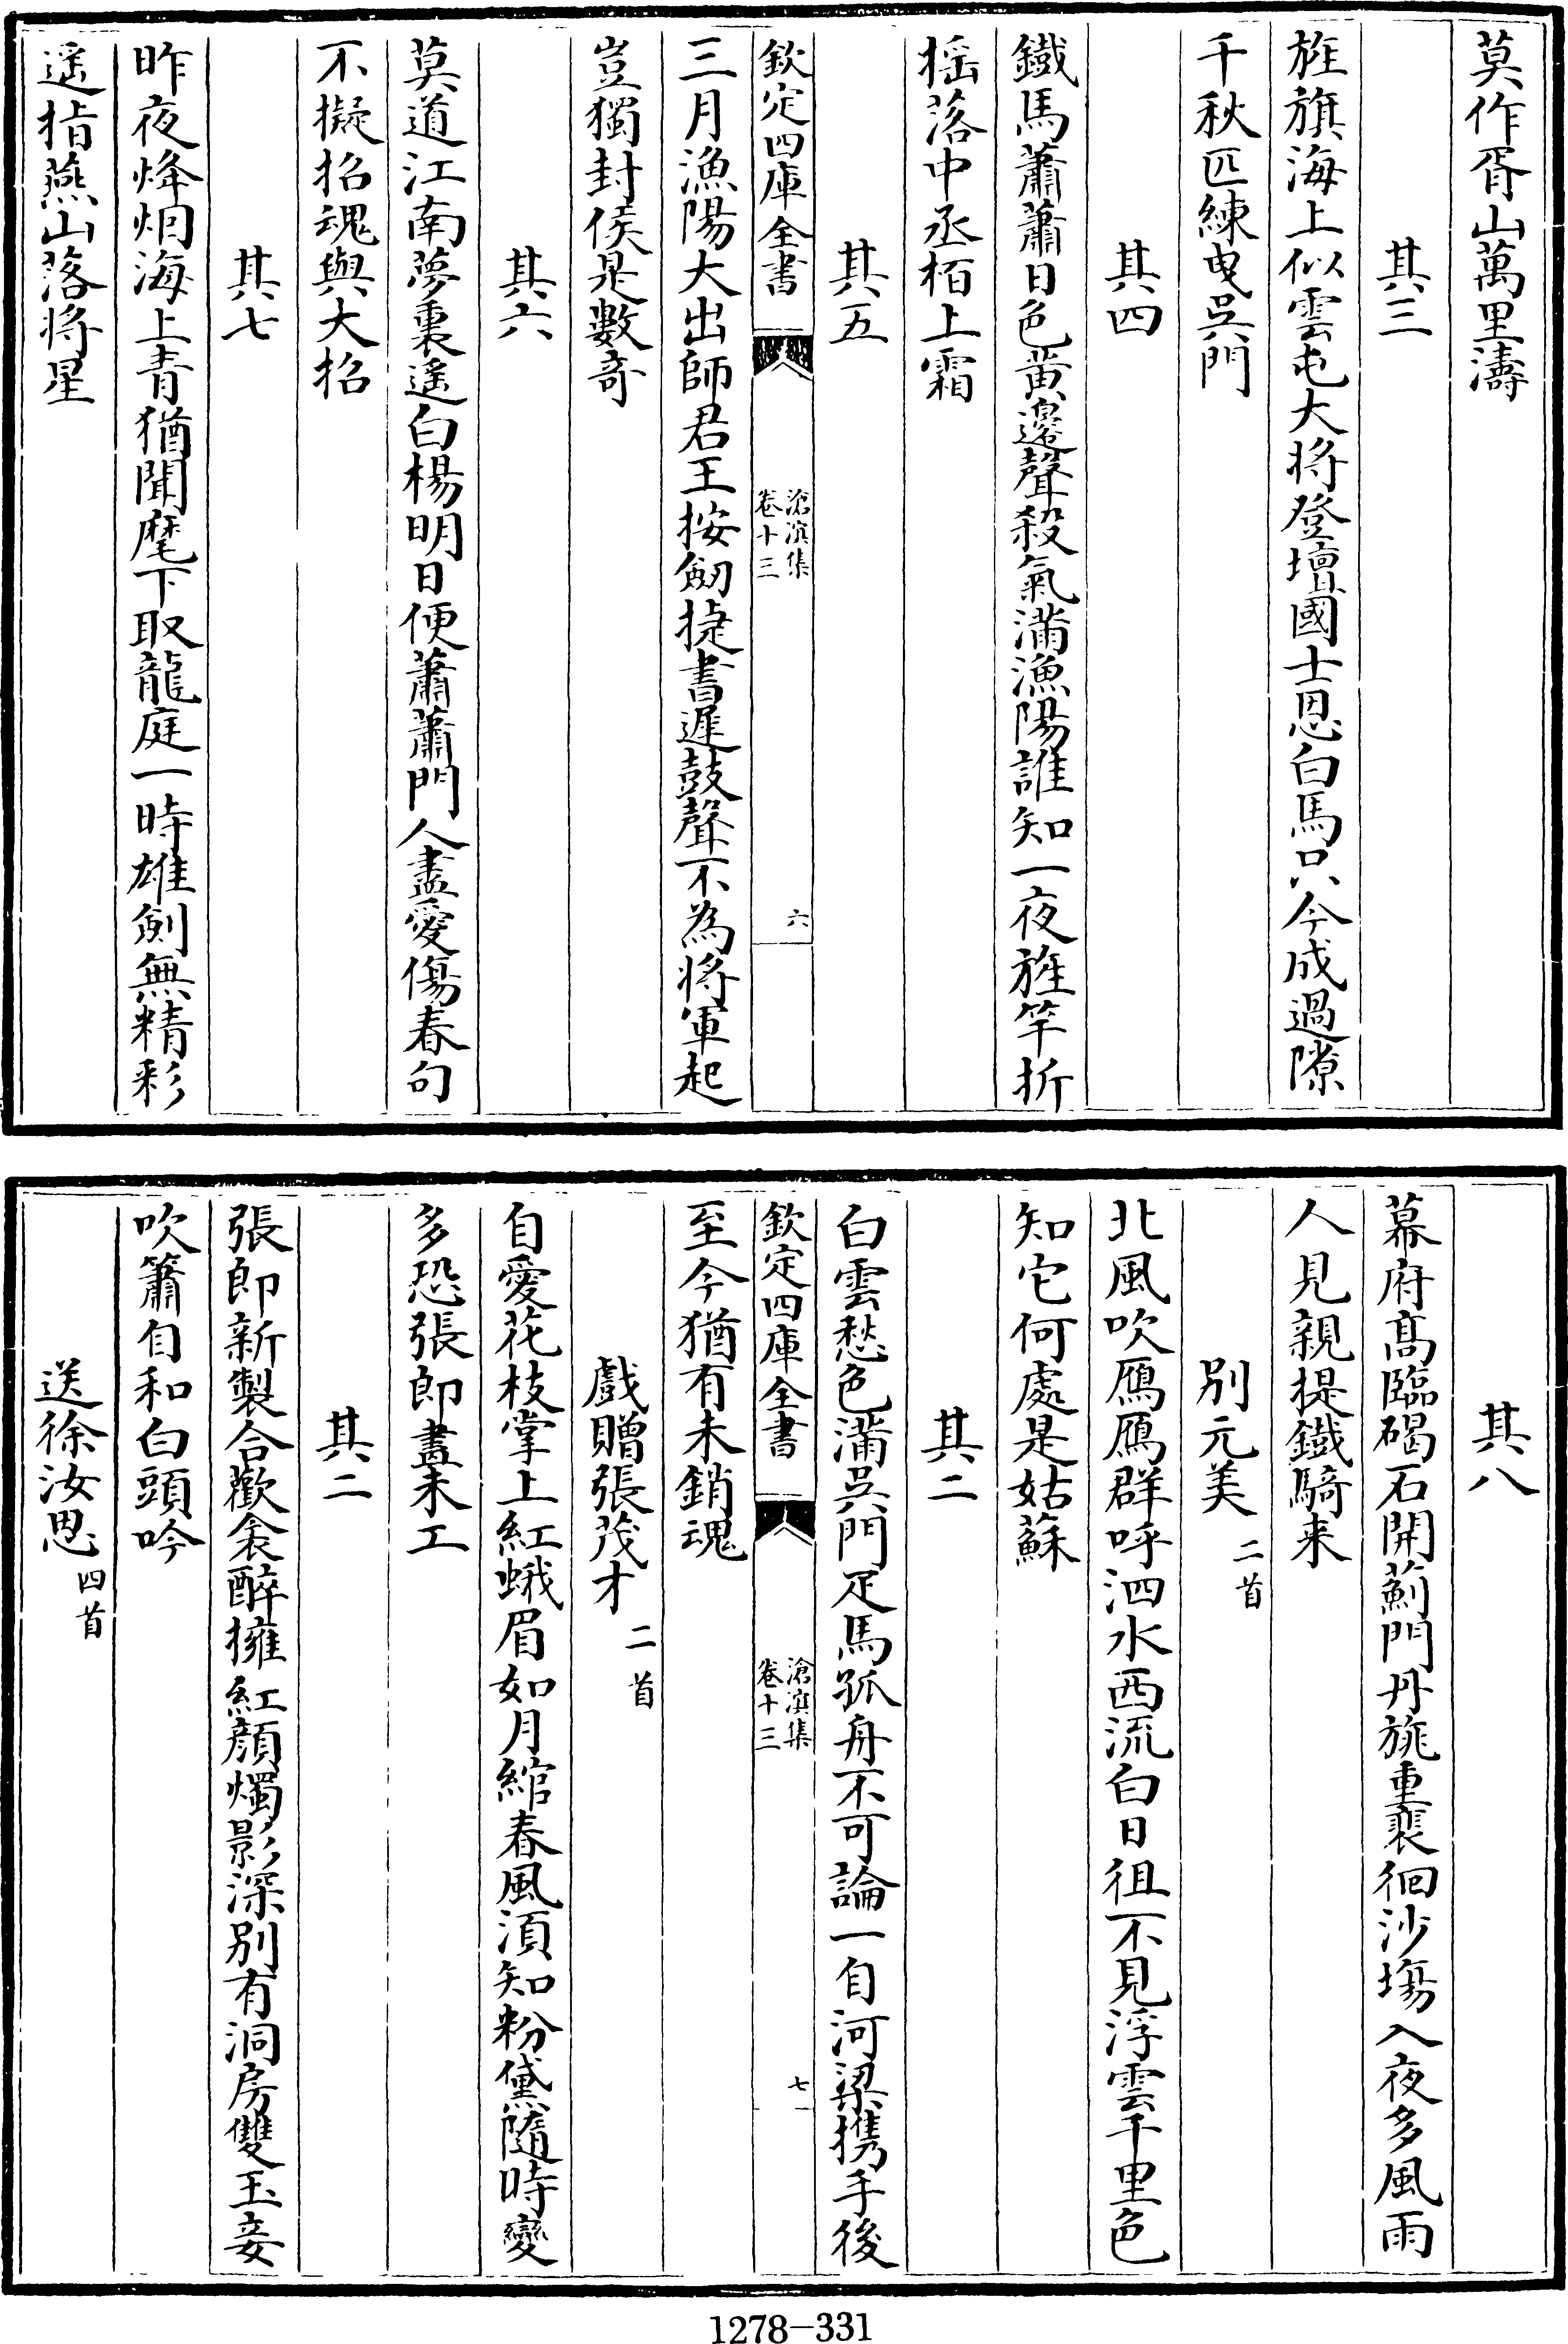 莫作胥山萬里濤
其三
旌旗海上似雲屯大將登壇國士恩白馬只今成過隙
千秋匹練曳吳門
其四
鐵馬蕭蕭日色黄邊聲殺氣滿漁陽誰知一夜旌竿折
摇落中丞栢上霜
其五
欽定四庫全書
滄溟集
卷十三
六
三月漁陽大出師君王按劒捷書遲鼓聲不為將軍起
豈獨封侯是數奇
其六
莫道江南夢裏遙白楊明日便蕭蕭門人盡愛傷春句
不擬招魂與大招
其七
昨夜烽烟海上青猶聞麾下取龍庭一時雄劍無精彩
遥指燕山落將星
其八
幕府髙臨碣石開薊門丹旐重裴徊沙塲入夜多風雨
人見親提鐵騎来
别元美 二首
北風吹鴈鴈群呼泗水西流白日徂不見浮雲千里色
知它何處是姑蘇
其二
白雲愁色滿吳門疋馬孤舟不可論一自河梁携手後
欽定四庫全書
滄溟集
卷十三
七
至今猶有未銷魂
戲贈張茂才 二首
自愛花枝掌上紅蛾眉如月綰春風湏知粉黛隨時變
多恐張郎畫未工
其二
張郎新製合歡衾醉擁紅顔燭影深别有洞房雙玉妾
吹簫自和白頭吟
送徐汝思 四首
1278-331